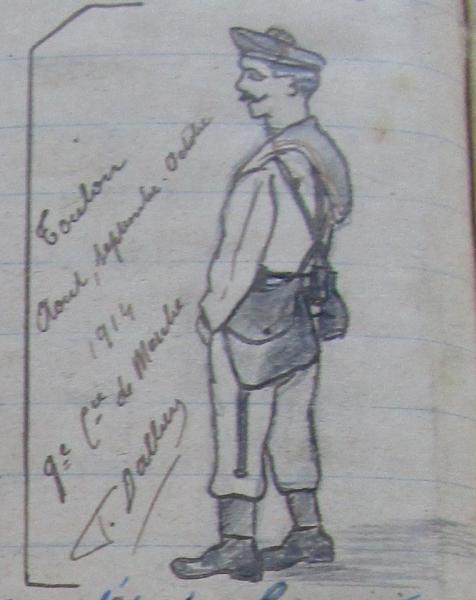 Toulon
Aout, Septembre. Octobre
1914
9e Cie de Marche